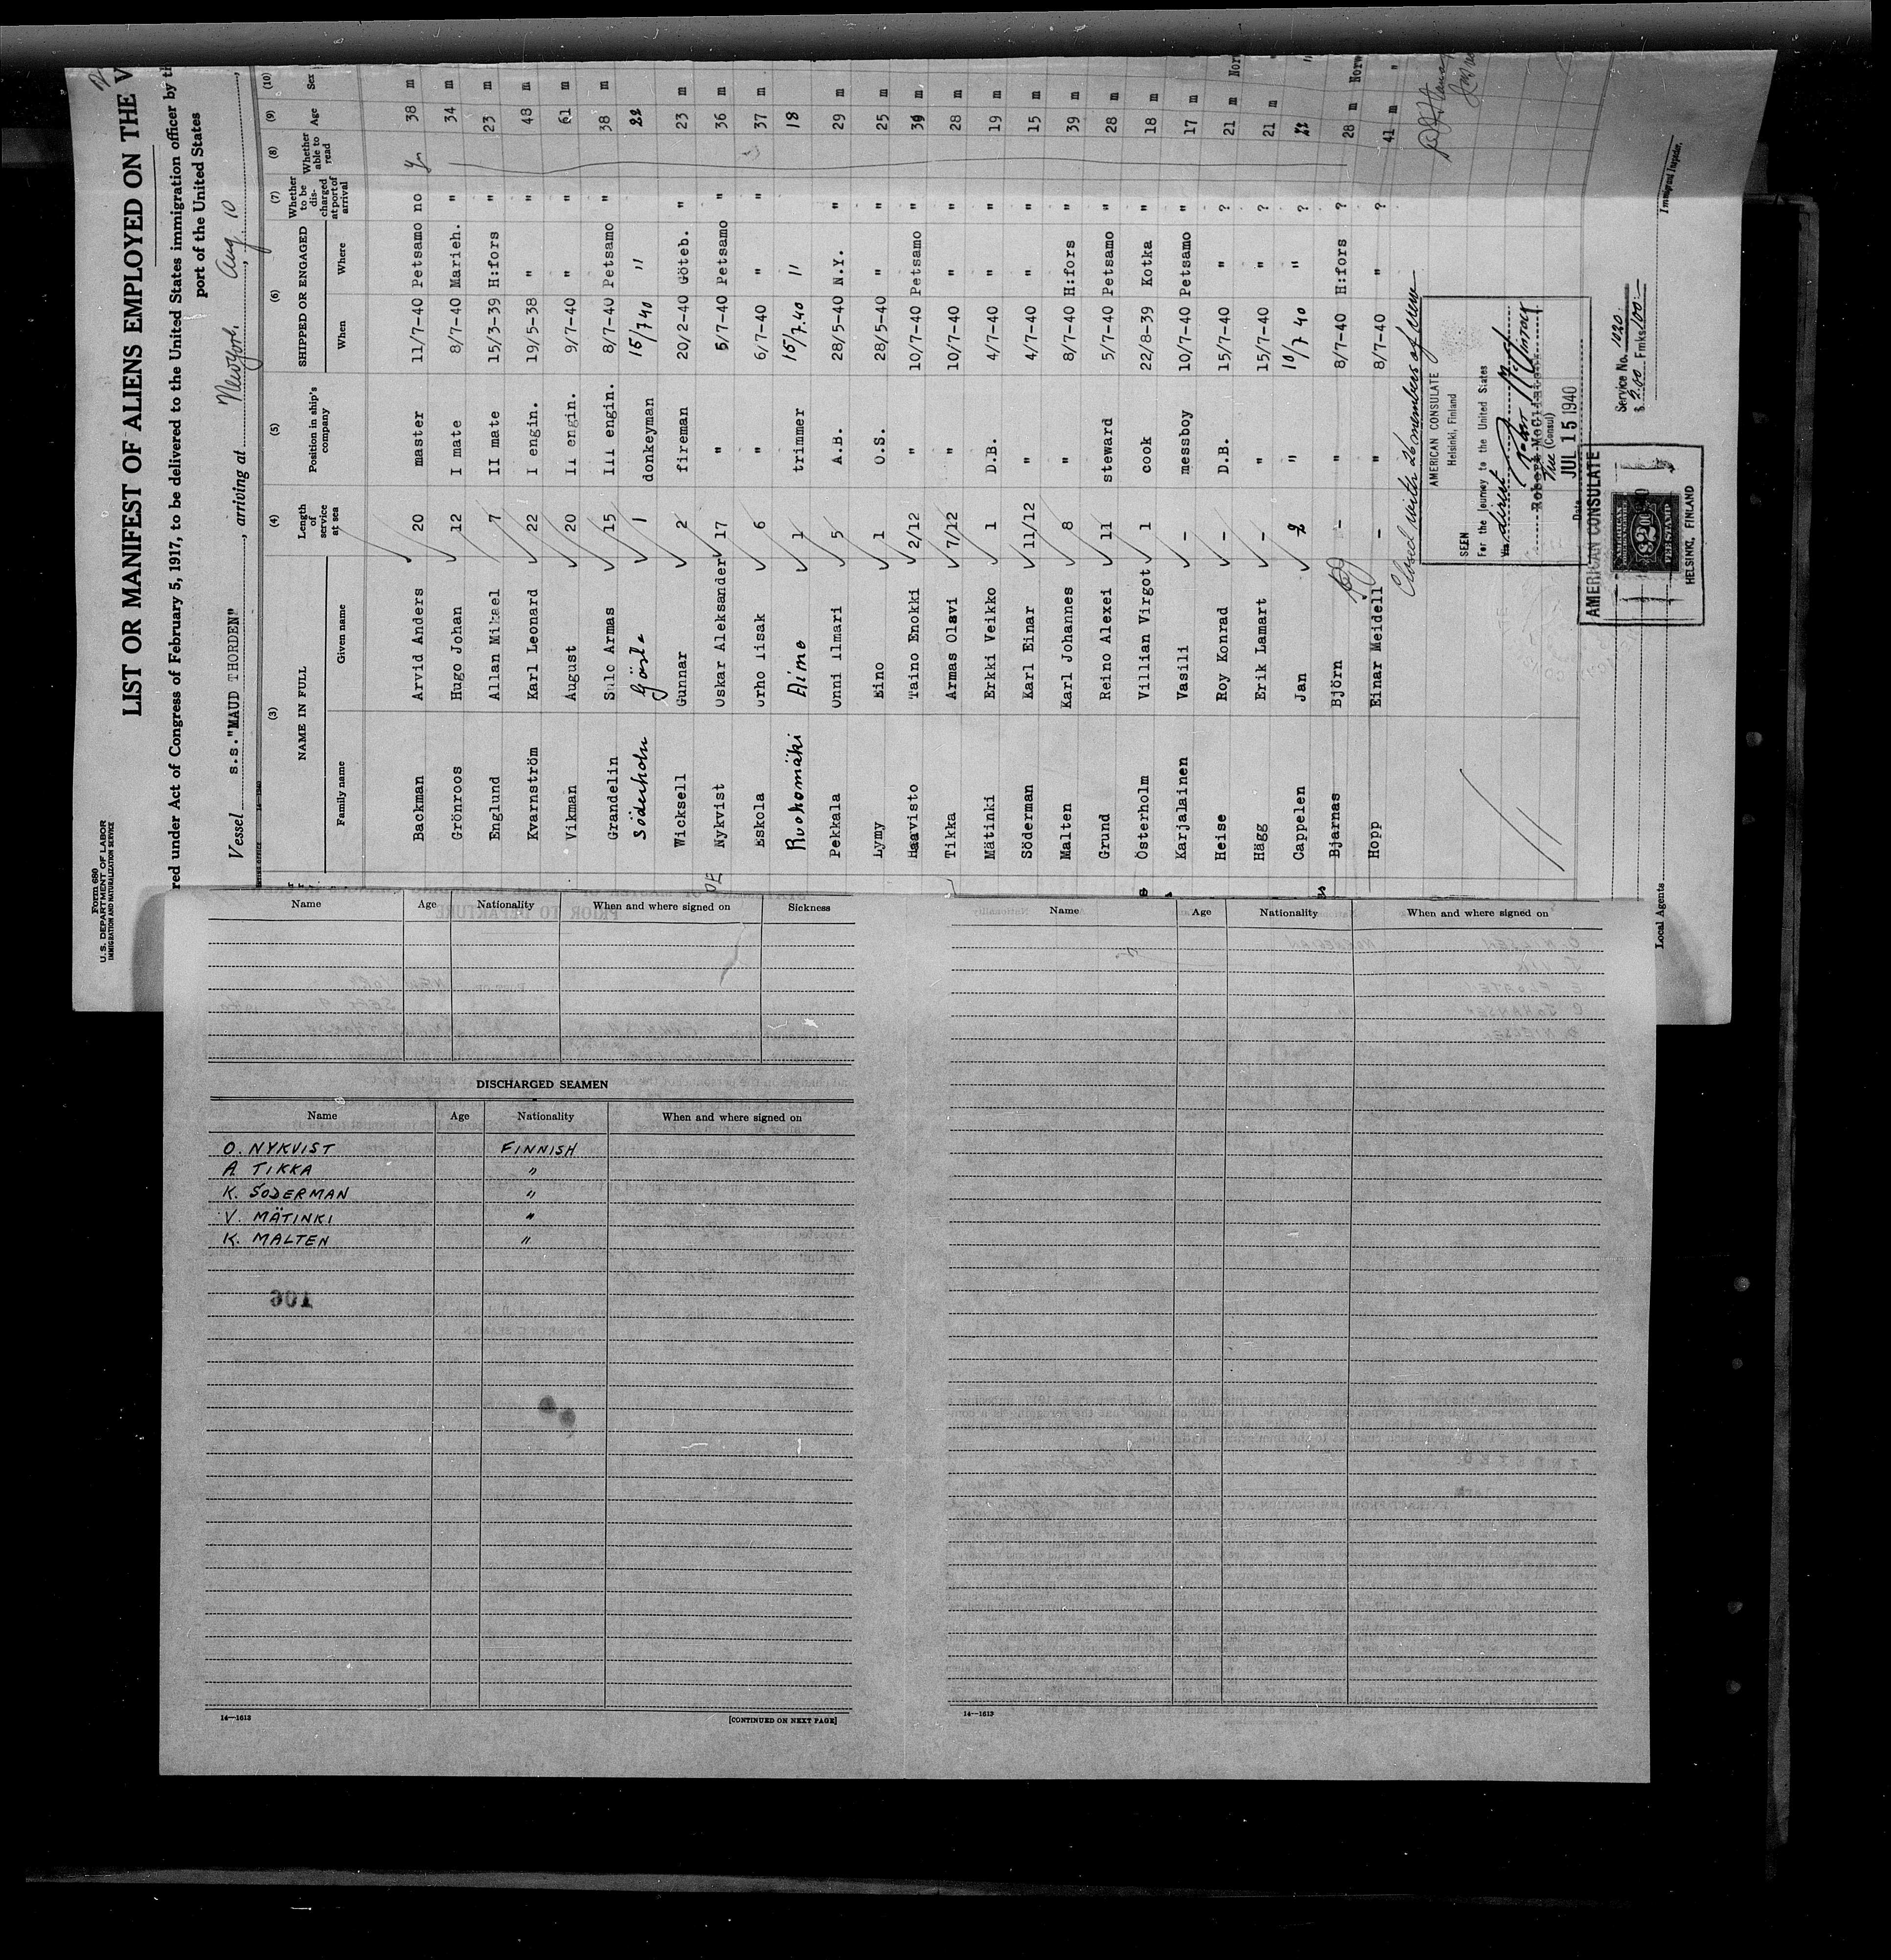 Form 680
U.S. DEPARTMENT OF LABOR
IMMIGRATION AND NATURALIZATION SERVICE
LIST OR MANIFEST OF ALIENS EMPLOYED ON THE V
red under Act of Congress of February 5, 1917, to be delivered to the United States immigration officer by th
port of the United States
Vessel s.s."MAUD THORDEN", arriving at New York, Aug 10
(3) (4) (5) (6) (7) (8) (9) (10)
NAME IN FULL Length of service at sea Position in ship's company SHIPPED OR ENGAGED Whether to be discharged at port of arrival Whether able to read Age Sex
Family name Given name When Where
Backman Arvid Anders 20 master 11/7-40 Petsamo no Yes 38 m
Grönroos Hugo Johan 12 I mate 8/7-40 Marieh. " 34 m
Englund Allan Mikael 7 II mate 15/3-39 H:fors " 23 m
Kvarnström Karl Leonard 22 I engin. 19/5-38 " " 48 m
Vikman August 20 II engin. 9/7-40 " " 61 m
Grandelin Salo Armas 15 III engin. 8/7-40 Petsamo " 38 m
Söderholm Gösta 1 donkeyman 15/7 40 " 22
Wicksell Gunnar 2 fireman 20/2-40 Göteb. " 23 m
Nykvist Oskar Aleksander 17 " 5/7-40 Petsamo " 36 m
Eskola Urho Iisak 6 " 6/7-40 " " 37 m
Ruohomäki Aimo 1 trimmer 15/7.40 " 18
Pekkala Onni Ilmari 5 A.B. 28/5-40 N.Y. " 29 m
Lymy Eino 1 O.S. 28/5-40 " " 25 m
Haavisto Taino Enokki 2/12 " 10/7-40 Petsamo " m
Tikka Armas Olavi 7/12 " 10/7-40 " " 28 m
Mätinki Erkki Veikko 1 D.B. 4/7-40 " " 19 m
Söderman Karl Einar 11/12 " 4/7-40 " " 15 m
Malten Karl Johannes 8 " 8/7-40 H:fors " 39 m
Grund Reino Alexei 11 steward 5/7-40 Petsamo " 28 m
Österholm Villian Virgot 1 cook 22/8-39 Kotka " 18 m
Karjalainen Vasili - messboy 10/7-40 Petsamo " 17 m
Heise Roy Konrad - D.B. 15/7-40 " ? 21 m Nor
Hägg Erik Lamart - " 15/7-40 " ? 21 m "
Cappelen Jan " 10/7 40 " ? "
Bjarnas Björn - " 8/7-40 H:fors ? 28 m Norw
Hopp Einar Meidell - " 8/7-40 " ? 41 m "
Closed with 26 members of crew
AMERICAN CONSULATE
Helsinki, Finland
SEEN
For the journey to the United States
Via direct
Robert McClintock
Vice (Consul)
Date JUL 15 1940
AMERICAN CONSULATE
AMERICAN
$2.00
FEE STAMP
HELSINKI, FINLAND
Service No. 1020
$ 2.00 Fmks 100:-
Immigrant Inspector.
Local Agents
Name Age Nationality When and where signed on Sickness
DISCHARGED SEAMEN
Name Age Nationality When and where signed on
O. NYKVIST FINNISH
A TIKKA "
K. SÖDERMAN "
V. MÄTINKI "
K. MALTEN "
14—1613 [CONTINUED ON NEXT PAGE]
Name Age Nationality When and where signed on
14—1613